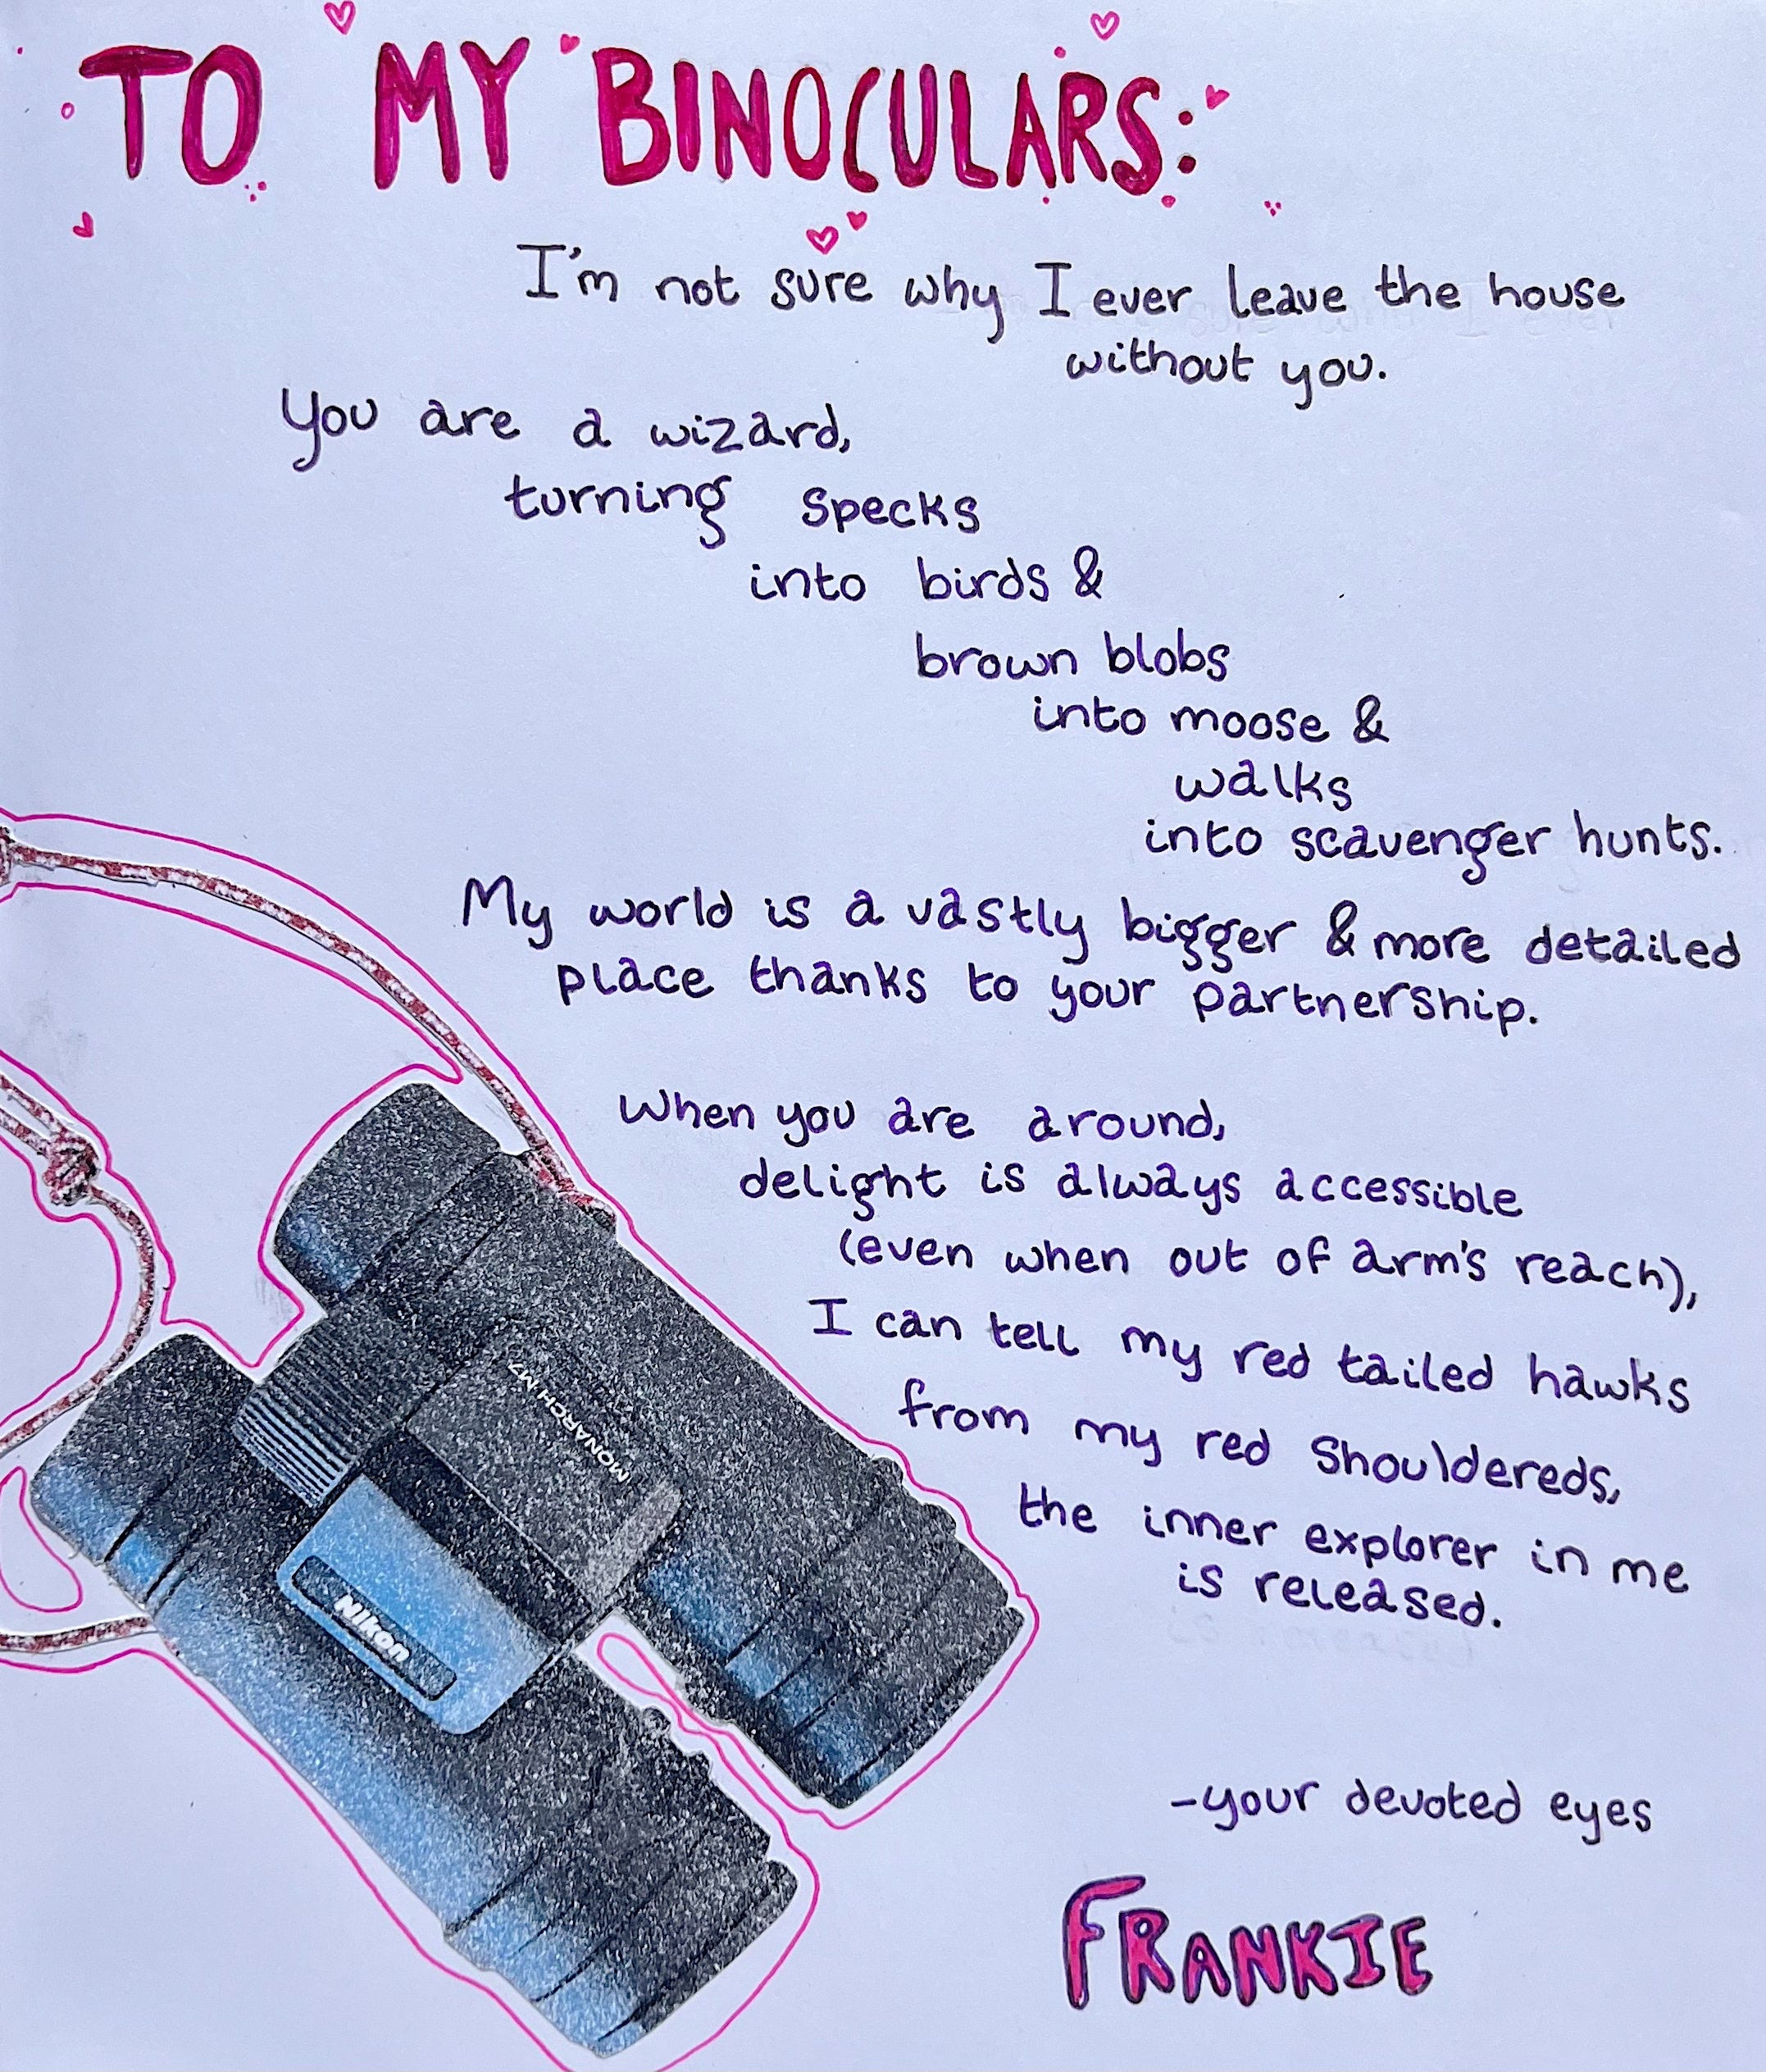 TO MY BINOCULARS:
I'm not sure why I ever leave the house
without you.
You are a wizard,
turning specks
into birds &
brown blobs
into moose &
walks
into scavenger hunts.
My world is a vastly bigger & more detailed
place thanks to your partnership.
When you are around,
delight is always accessible
(even when out of arm's reach),
I can tell my red tailed hawks
from my red shouldereds,
the inner explorer in me
is released.
MONARCH M7
Nikon
-your devoted eyes
FRANKIE